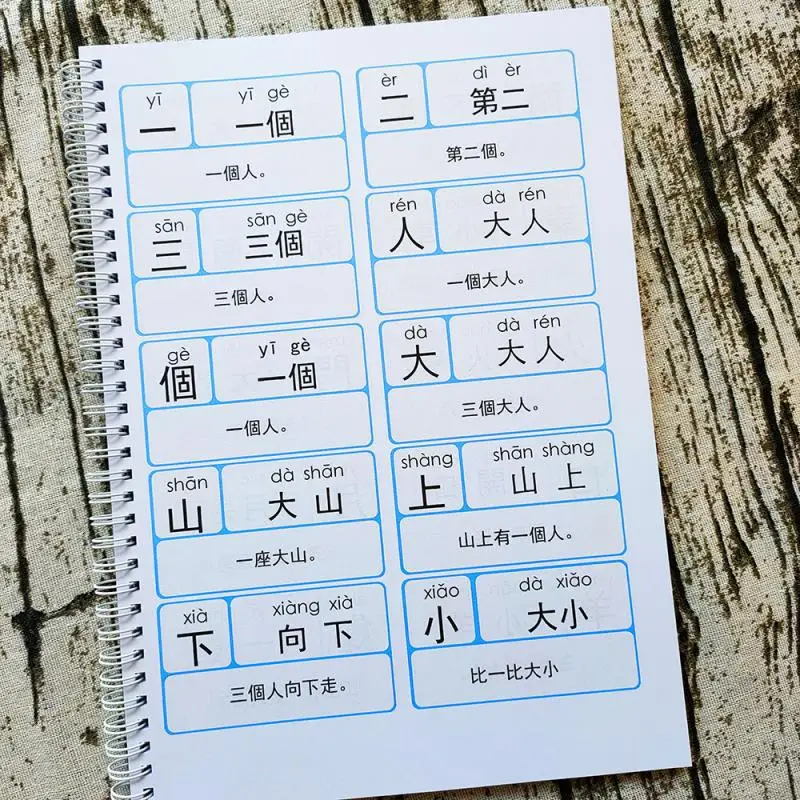 yī
一
yī gè
一個
一個人。
èr
二
dì èr
第二
第二個。
sān
三
sān gè
三個
三個人。
rén
人
dà rén
大人
一個大人。
gè
個
yī gè
一個
一個人。
dà
大
dà rén
大人
三個大人。
shān
山
dà shān
大山
一座大山。
shàng
上
shān shàng
山上
山上有一個人。
xià
下
xiàng xià
向下
三個人向下走。
xiǎo
小
dà xiǎo
大小
比一比大小